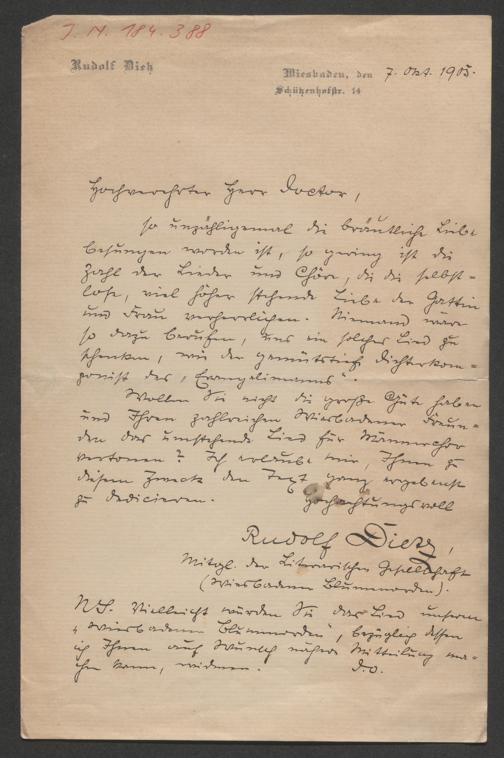 J. N. 184.388
Rudolf Dietz
Wiesbaden, den 7. Okt. 1905.
Schützenhofstr. 14
Hochverehrter Herr Doctor,
so unzähligemal die bräutliche Liebe
besungen worden ist, so gering ist die
Zahl der Lieder und Chöre, die die selbst-
lose, viel höher stehende Liebe der Gattin
und Frau verherrlichen. Niemand wäre
so dazu berufen, uns ein solches Lied zu
schenken, wie der gemütstiefe Dichterkom-
ponist des „Evangelimanns".
Wollen Sie nicht die große Güte haben
und Ihren zahlreichen Wiesbadener Freun-
den das umstehende Lied für Männerchor
vertonen? Ich erlaube mir, Ihnen zu
diesem Zweck den Text ganz ergebenst
zu dedicieren. Hochachtungsvoll
Rudolf Dietz,
Mitgl. der Literarischen Gesellschaft
(Wiesbadener Blumenorden).
NS. Vielleicht würden Sie das Lied unserm
„Wiesbadener Blumenorden", bezüglich dessen
ich Ihnen auf Wunsch nähere Mitteilung ma-
chen kann, widmen. D.O.